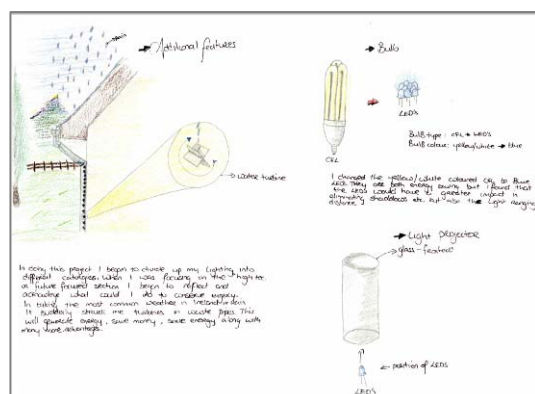 Additional features
water turbine
In doing this project I began to divide up my lighting into
different catagories. When I was focusing on the high tec
or future focused section I began to reflect and
acknowledge what could I do to conserve energy.
In taking the most common weather in Ireland-rain
It suddenly struck me turbines in waste pipes. This
will generate energy, save money, save energy along with
many more advantages.
Bulb
CFL
LED'S
Bulb type: CFL → LED'S
Bulb colour: yellow/white → blue
I changed the yellow/white coloured CFL to Blue
LED'S. They are both energy saving but I found that
the LEDS would have a greater impact in
eliminating shadows etc but also the light ranging
distance
Light projector
glass-feature
position of LEDS
LED'S